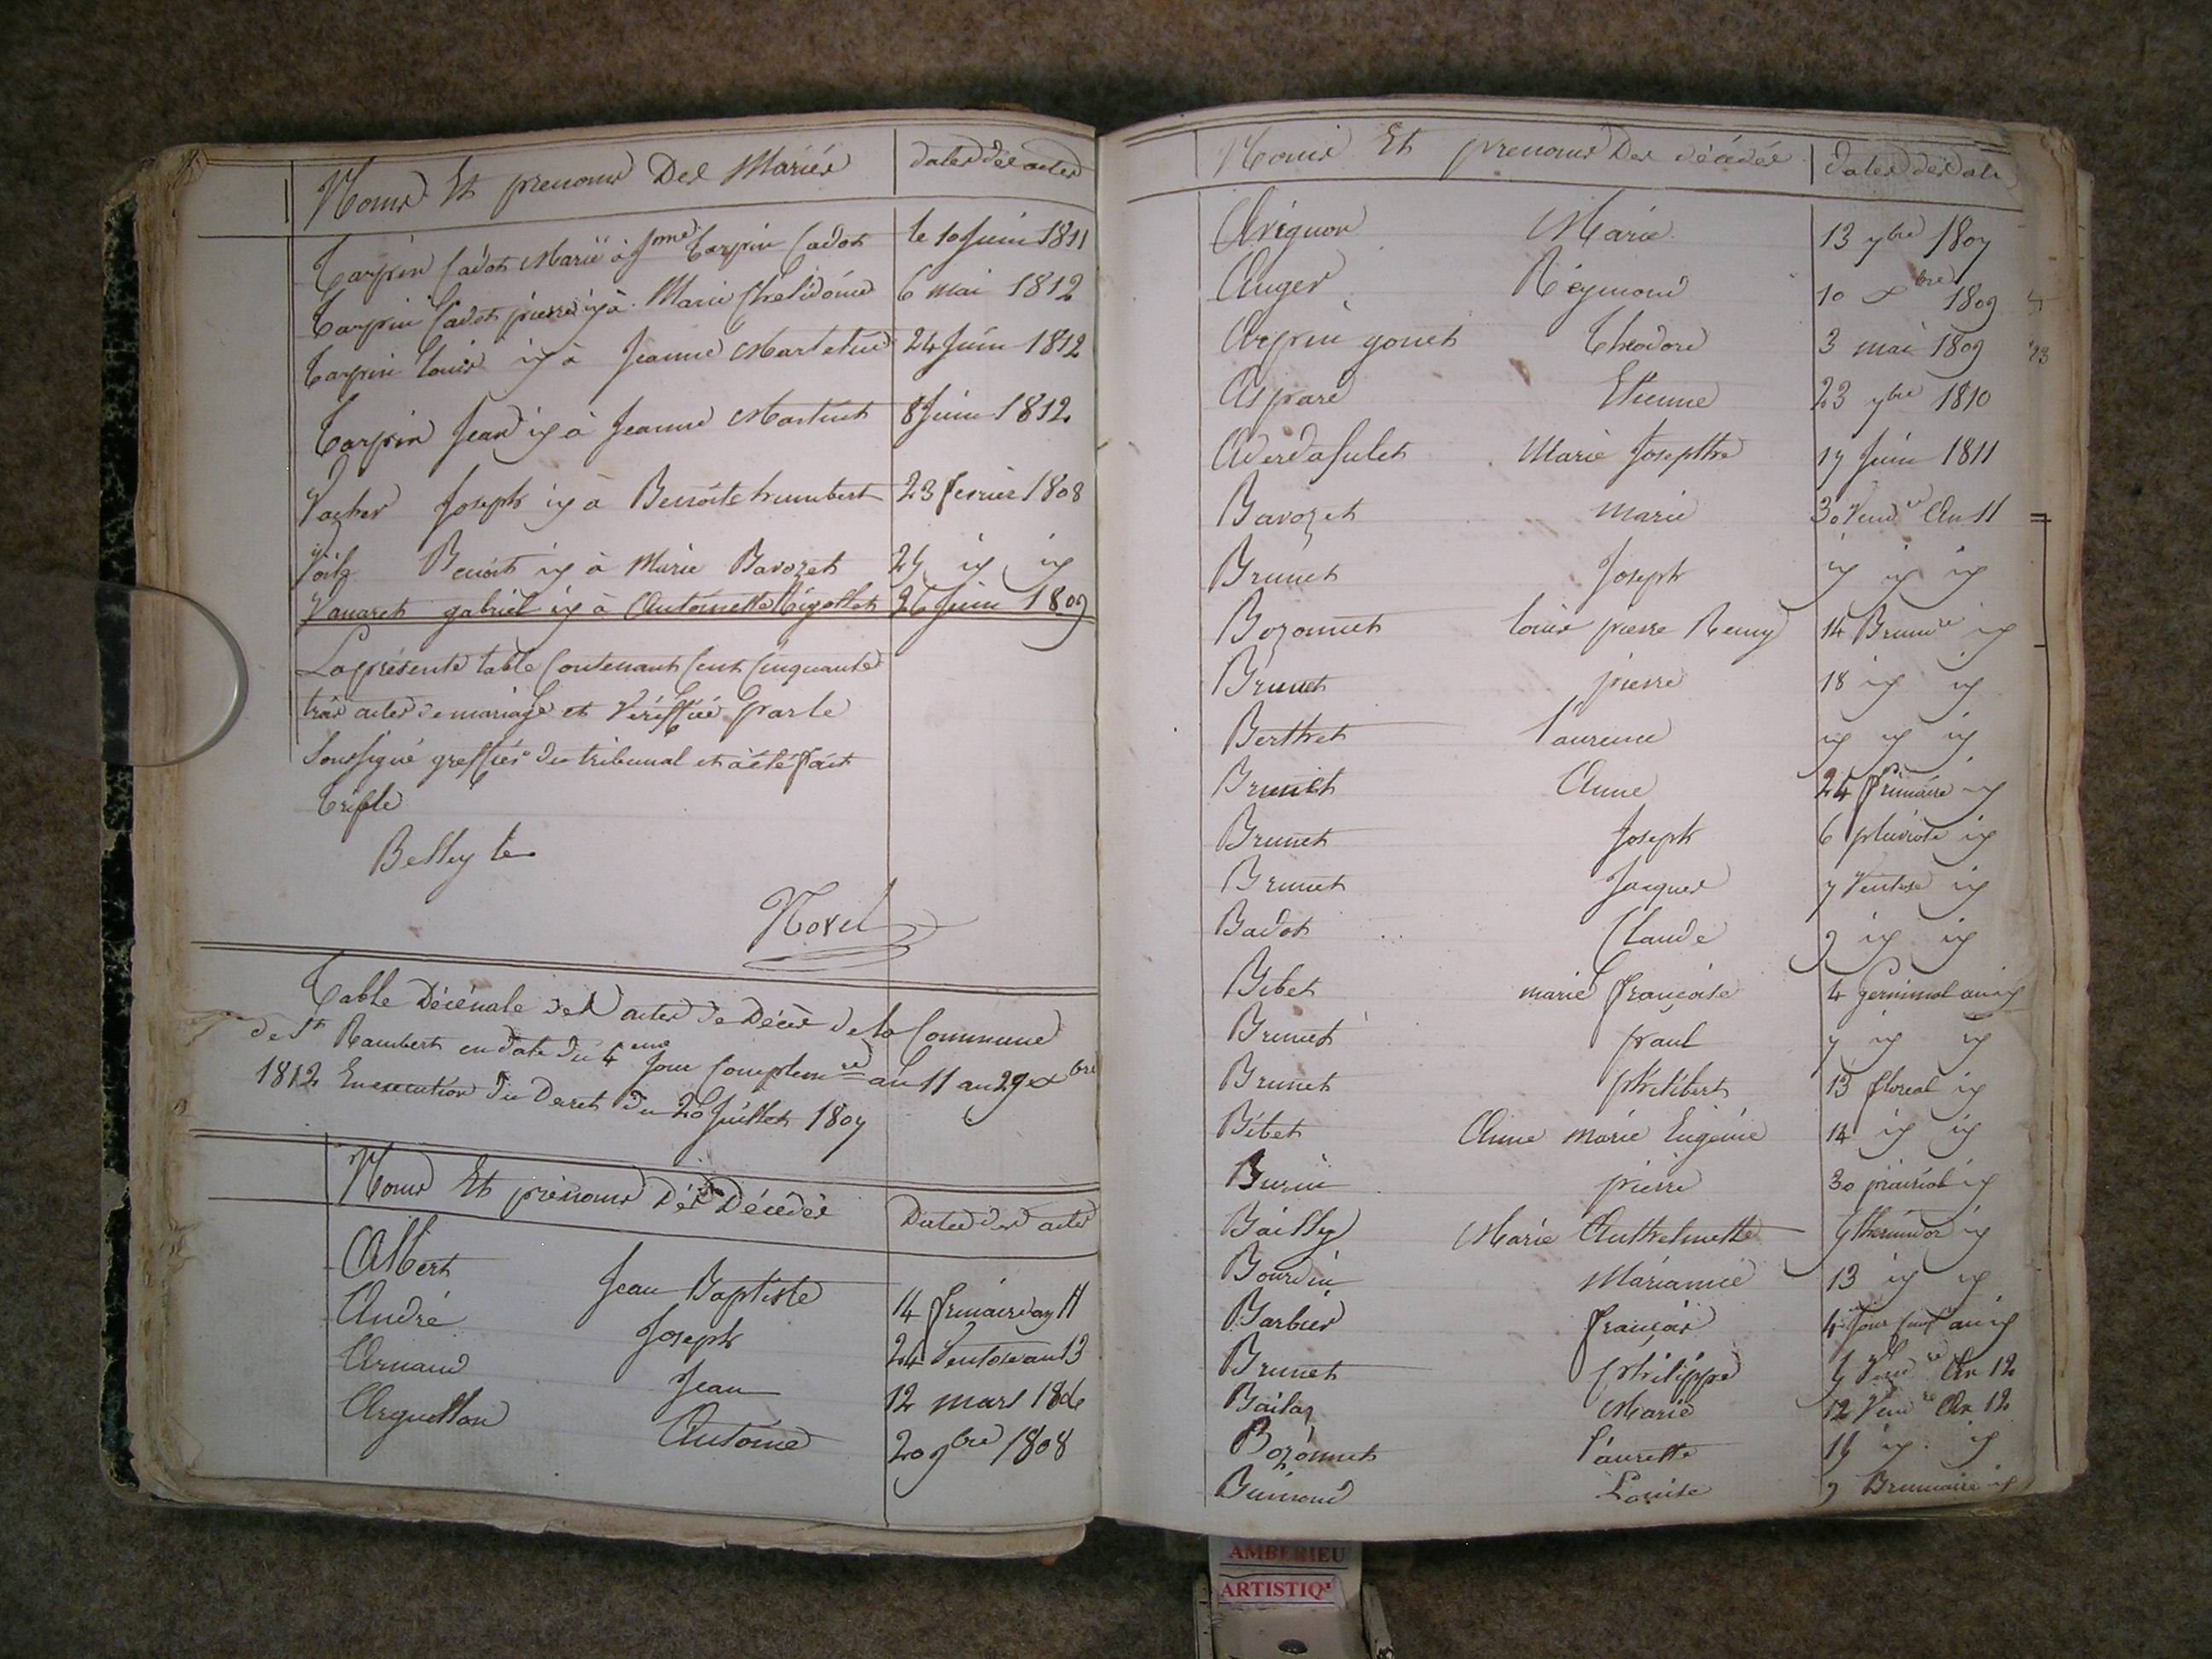 Noms Et prenoms Des Mariés dates des actes
Tarpin Cadot Marié à Jnne Tarpin Cadot le 10 Juin 1811
Tarpin Cadot pierre id à Marie Chelidoine 6 mai 1812
Tarpin Louis id à Jeanne Martelin 24 Juin 1812
Tarpin Jean id à Jeanne Martinet 8 Juin 1812
Vacher Joseph id à Benoite humbert 23 fevrier 1808
Benoit id à Marie Bavozet id id
Vanaret gabriel id à Antoinette Rigollet 26 Juin 1809
La présente table Contenant Cent Cinquante
trois actes de mariage et Vériffiée par le
Soussigné greffier du tribunal et a été fait
triple
Belley le
Novel
Table Décénale des actes de Décès de la Commune
de St Rambert en date du 4eme Jour Complemre an 11 au 29 xbre
1812 En execution du Decret du 20 Juillet 1807
Noms Et prénoms Des Décédés Dates des actes
Albert Jean Baptiste 14 frimaire an 11
André Joseph 24 Ventose an 13
Arnaud Jean 12 mars 1806
Arguillon Antoine 20 9bre 1808
Noms Et prenoms Des décédés dates des acte
Avignon Marie 13 7bre 1807
Auger Réymond 10 xbre 1809
Arpin gonet Théodore 3 mai 1809
Aspare Etienne 23 7bre 1810
Marie Josephte 17 Juin 1811
Bavozet marie 30 Vendre An 11
Brunet Joseph id id id
Bozonnet Louis pierre Remy 14 Brumre id
Brunet pierre 18 id id
Berthet Laurence id id id
Brunet Anne 24 frimaire id
Brunet Joseph 6 pluviose id
Brunet Jacques 7 Ventose id
Badot Claude 9 id id
Bibet marie françoise 4 germinal an id
Brunet paul 7 id id
Brunet philibert 13 floreal id
Bibet Anne marie Eugenie 14 id id
Burin pierre 30 prairial id
Bailly Marie Anthelmette 7 thermidor id
Bourdin Marianne 13 id id
Barbier françois 4 Jour Compt an id
Brunet philippe 7 Vendre An 12
Bailaz Marie 12 Vendre An 12
Bozonnet Laurette 14 id id
Louise 9 Brumaire id
AMBERIEU
ARTISTIQ